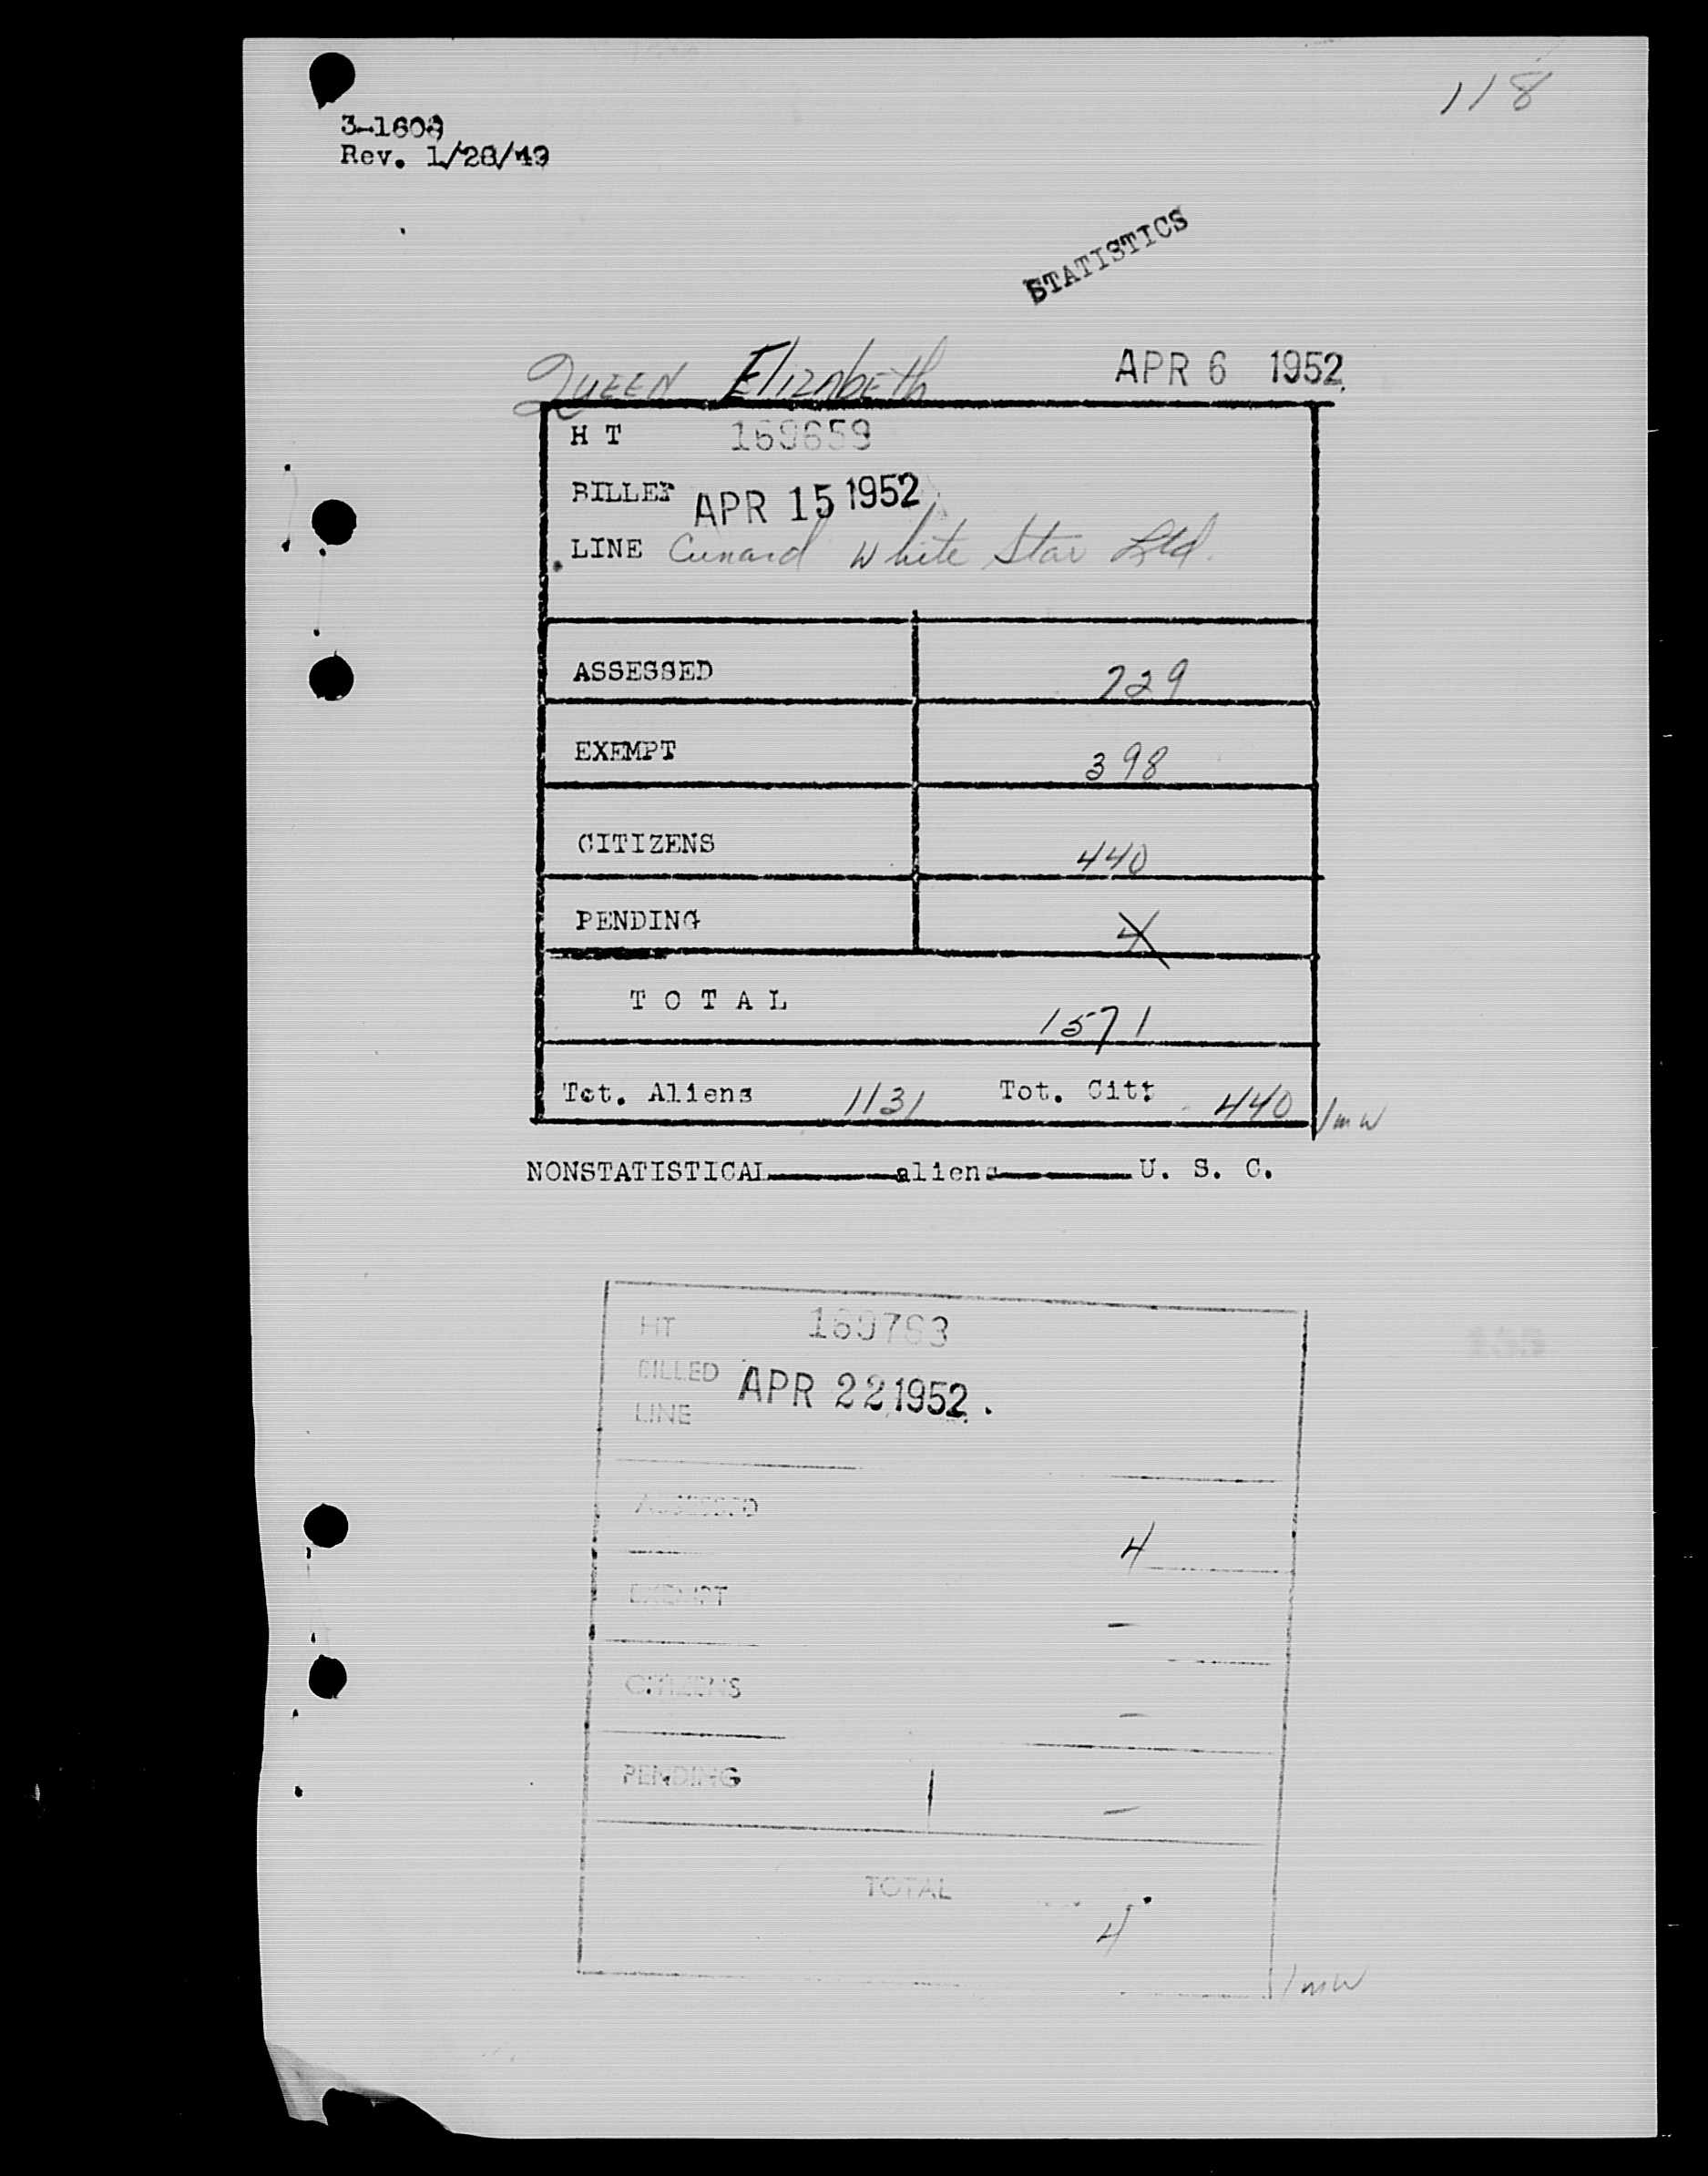 118
3-1608
Rev. 1/28/49
STATISTICS
QUEEN ElizabETh APR 6 1952
H T 169659
BILLED APR 15 1952
LINE Cunard White Star Ltd.
ASSESSED 729
EXEMPT 398
CITIZENS 440
PENDING 4
T O T A L 1571
Tot. Aliens 1131 Tot. Citz 440 /mw
NONSTATISTICAL aliens U. S. C.
HT 169783
BILLED APR 22 1952.
LINE
ASSESSED 4
EXEMPT –
CITIZENS –
PENDING –
TOTAL 4
/mw